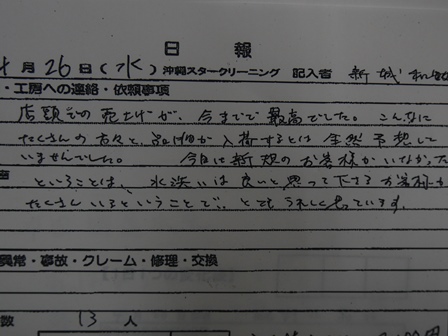 日報
4月26日(水) 沖縄スタークリーニング 記入者 新城
・工房への連絡・依頼事項
店頭での売上げが、今までで最高でした。こんなに
たくさんの方々と、品物が入荷するとは全然予想して
いませんでした。 今日は新規のお客様がいなかった
ということは、水洗いは良いと思って下さるお客様が
たくさんいるということで、とてもうれしく思っています。
異常・事故・クレーム・修理・交換
数 13人